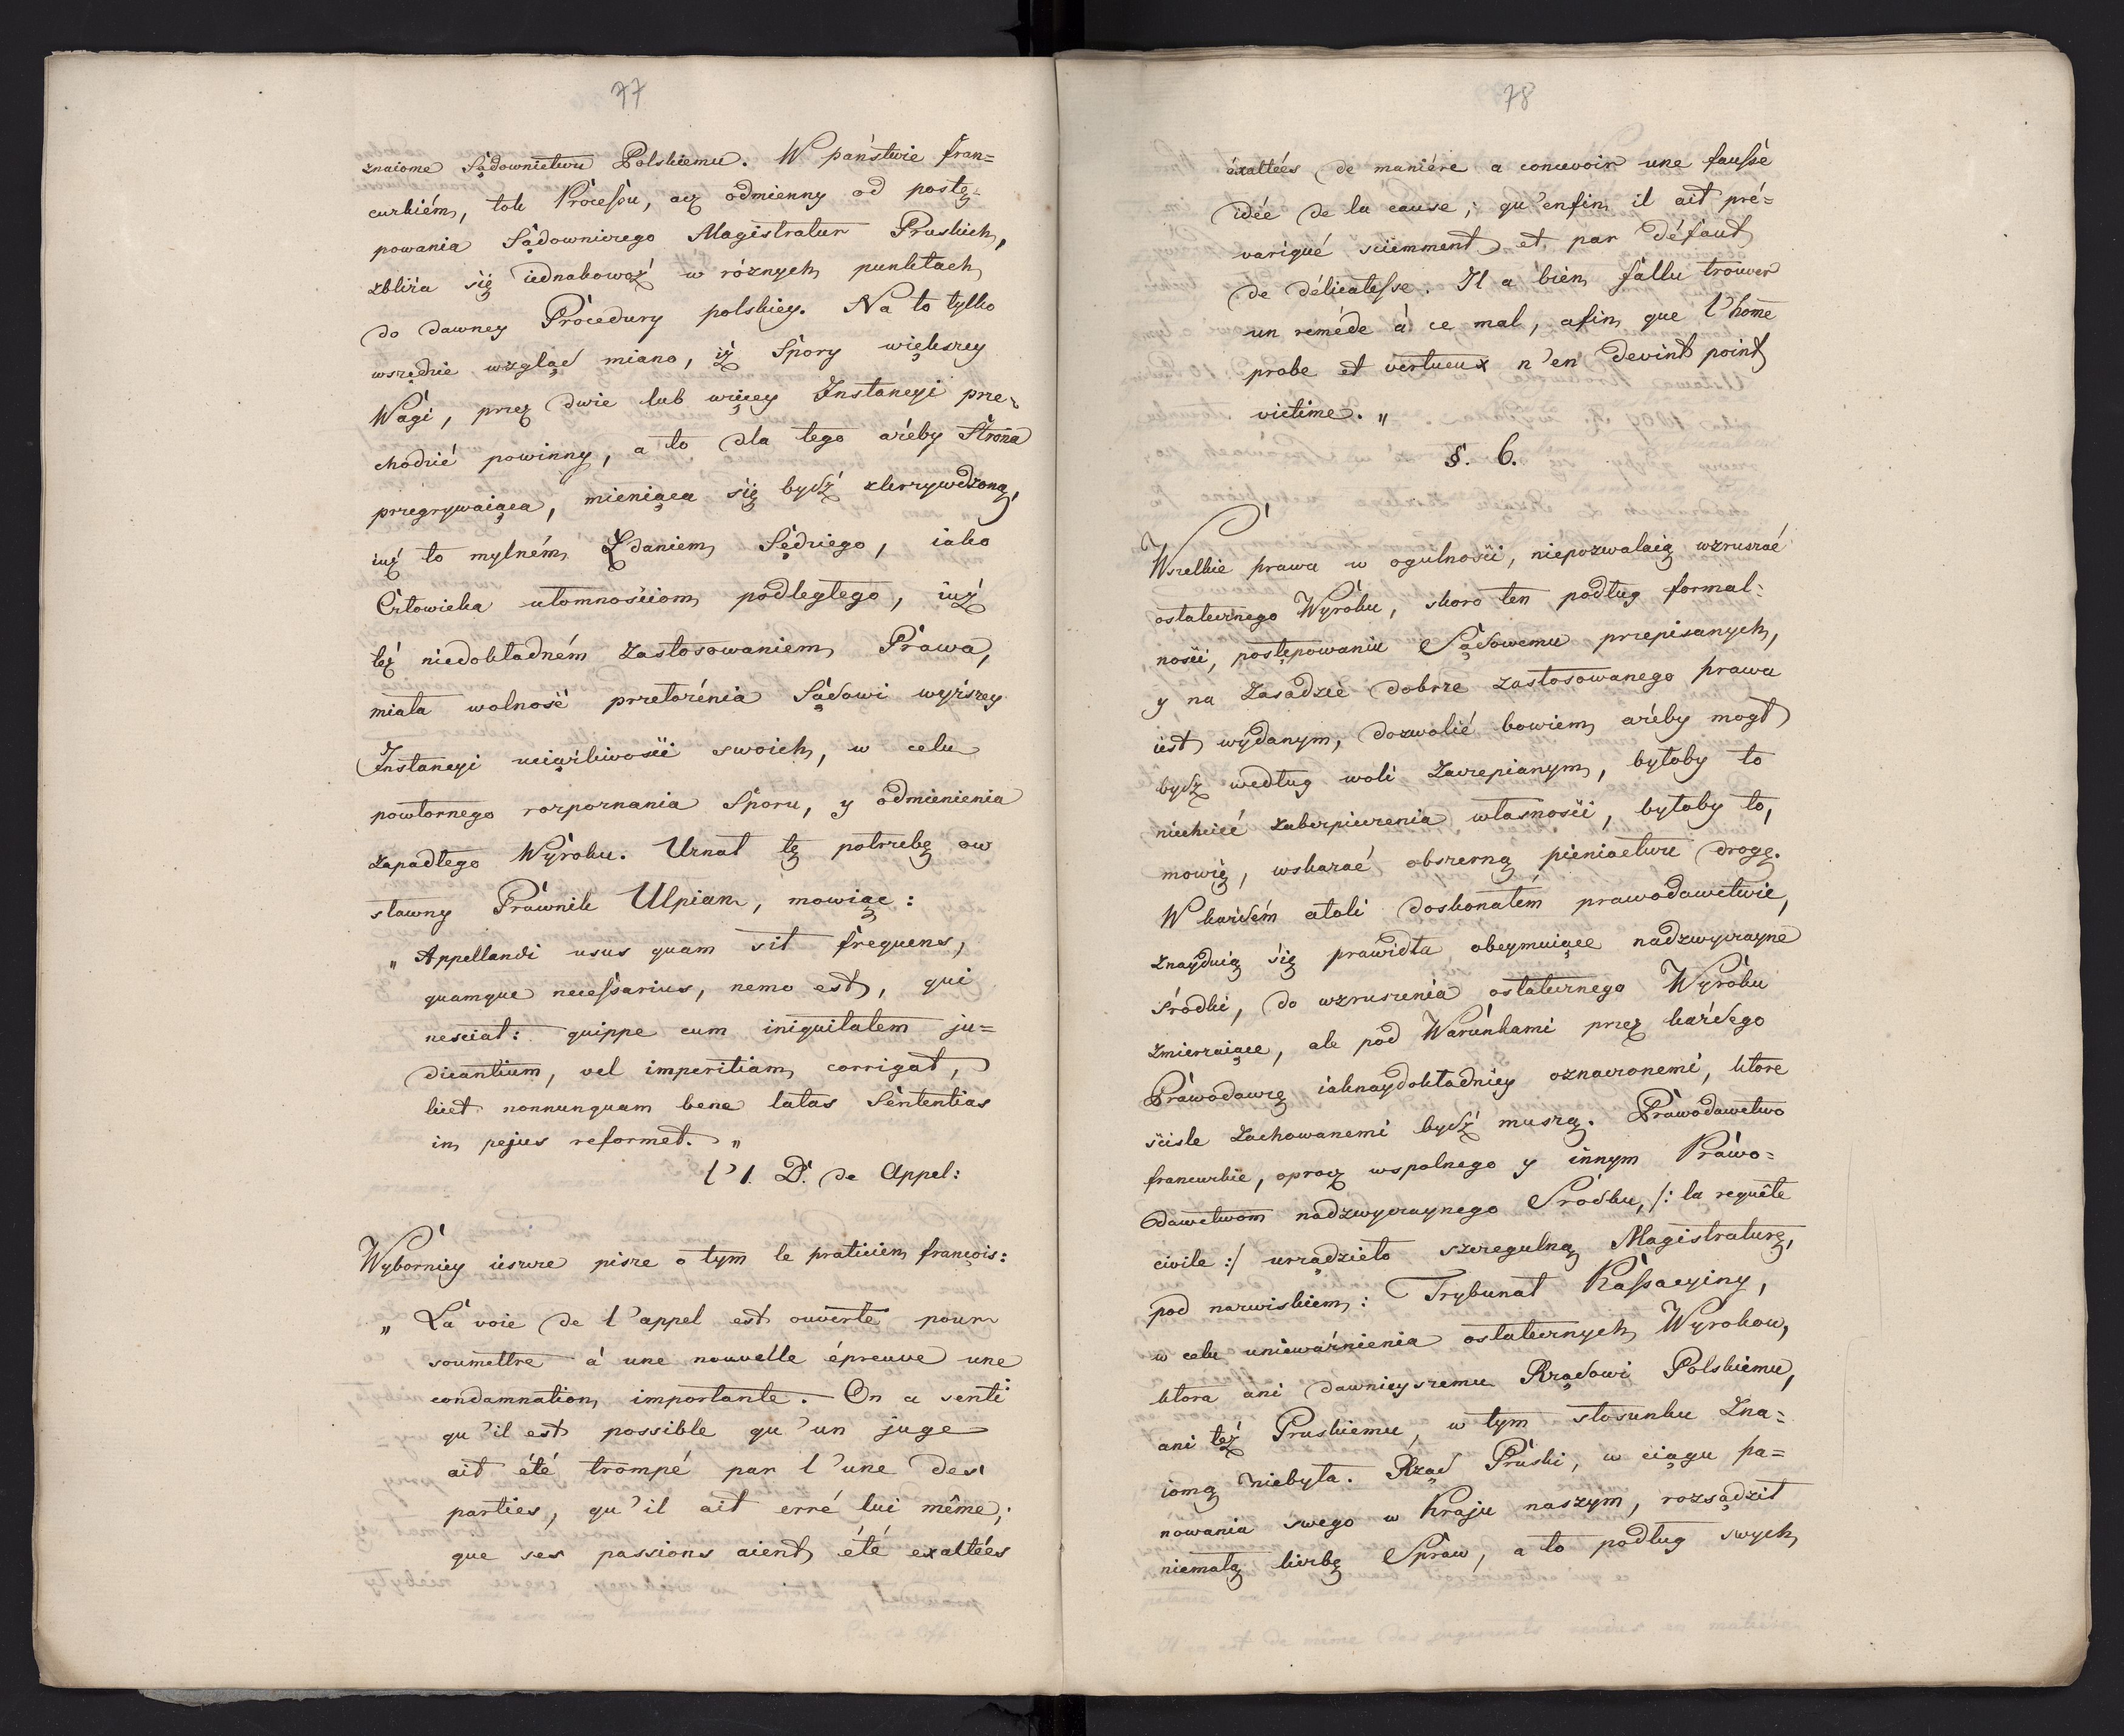 77
znaiome Sądownictwu Polskiemu. W państwie fran=
cuzkiém, tok Processu, acz odmienny od postę=
powania Sądowniczego Magistratur Pruskich,
zbliża się iednakowoż w różnych punktach
do dawney Procedury polskiey. Na to tylko
wszędzie wzgląd miano, iż Spory większey
Wagi, przez dwie lub więcey Instancyi prze=
chodzić powinny, a to dla tego ażeby Strona
przegrywaiąca, mieniąca się bydź skrzywdzoną,
iuż to mylném Zdaniem Sędziego, iako
Człowieka ułomnościom podległego, iuż
też niedokładném zastosowaniem Prawa,
miała wolność przełożenia Sądowi wyższey
Instancyi uciążliwości swoich, w celu
powtornego rozpoznania Sporu, y odmienienia
zapadłego Wyroku. Uznał tę potrzebę ow
sławny Prawnik Ulpian, mowiąc:
„Appellandi usus quam sit frequens,
quamque necessarius, nemo est, qui
nesciat: quippe cum iniquitatem ju=
dicantium, vel imperitiam corrigat,
licet nonnunquam bene latas Sententias
in pejus reformet.„
l' 1. D. de Appel:
Wyborniey ieszcze pisze o tym le praticien françois:
„La voie de l'appel est ouverte pour
soumettre à une nouvelle épreuve une
condamnation importante. On a senti
qu'il est possible qu'un juge
ait été trompé par l'une des
parties, qu'il ait erré lui même;
que ses passions aient été exaltées
78
éxaltées de maniére a concevoir une fausse
idée de la cause; qu'enfin il ait pré=
variqué sciemment et par défaut
de délicatesse. Il a bien fallu trouver
un reméde à ce mal, afin que l'home
probe et vertueux n'en devint point
victime.„
§. 6.
Wszelkie prawa w ogulności, niepozwalaią wzruszać
ostatecznego Wyroku, skoro ten podług formal=
ności, postępowaniu Sądowemu przepisanych,
y na Zasadzie dobrze zastosowanego prawa
iest wydanym, dozwolić bowiem ażeby mogł
bydź według woli Zaczepianym, byłoby to
niechcieć zabezpieczenia własności, byłoby to,
mowię, wskazać obszerną pieniactwu drogę.
W każdém atoli doskonałém prawodawctwie,
znayduią się prawidła obeymuiące nadzwyczayne
środki, do wzruszenia ostatecznego Wyroku
zmierzaiące, ale pod Warunkami przez każdego
Prawodawcę iaknaydokładniey oznaczonemi, ktore
ściśle zachowanemi bydź muszą. Prawodawctwo
francuzkie, oprocz wspolnego y innym Prawo=
dawctwom nadzwyczaynego Srodku, /: la requête
civile :/ urządziło szczegulną Magistraturę,
pod nazwiskiem: Trybunał Kassacyiny,
w celu unieważnienia ostatecznych Wyrokow,
ktora ani dawnieyszemu Rządowi Polskiemu,
ani też Pruskiemu, w tym stosunku Zna=
iomą niebyła. Rząd Pruski, w ciągu pa=
nowania swego w Kraju naszym, rozsądził
niemałą liczbę Spraw, a to podług swych